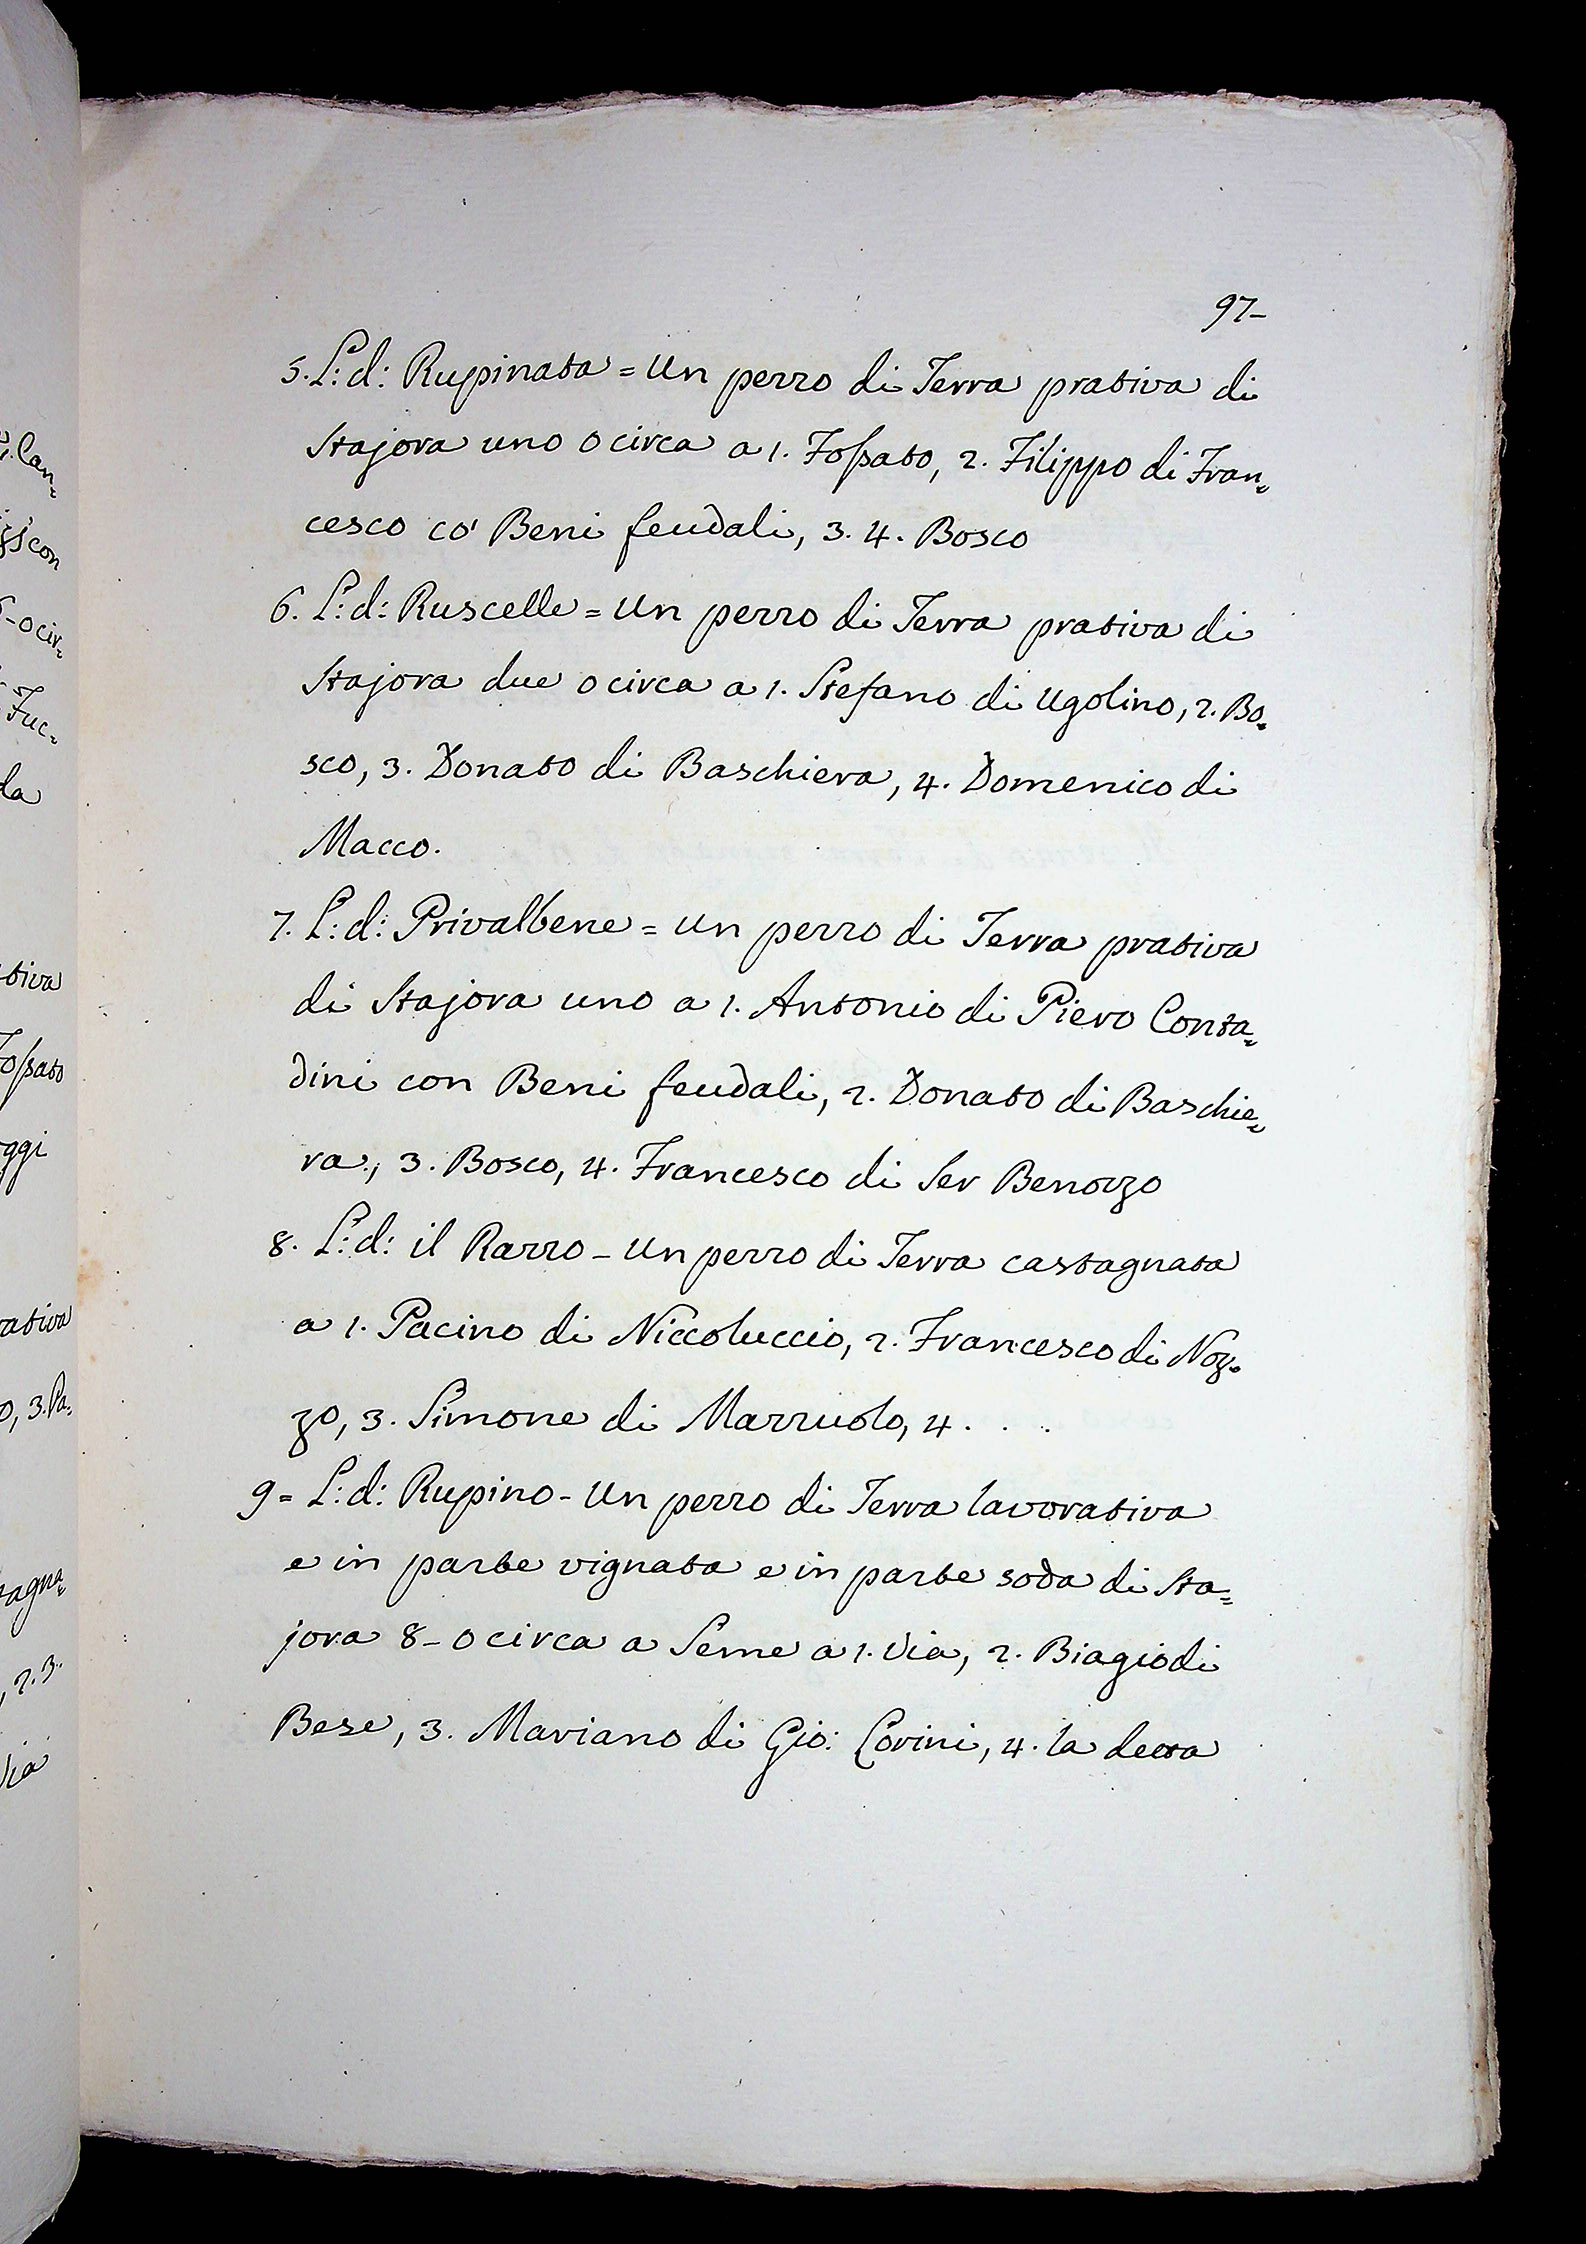 97-
5. L: d: Rupinata = Un pezzo di Terra prativa di
Stajora uno o circa a 1. Fossato, 2. Filippo di Fran=
cesco co' Beni feudali, 3. 4. Bosco
6. L: d: Ruscelle = Un pezzo di Terra prativa di
Stajora due o circa a 1. Stefano di Ugolino, 2. Bo=
sco, 3. Donato di Baschiera, 4. Domenico di
Macco.
7. L: d: Privalbene = Un pezzo di Terra prativa
di Stajora uno a 1. Antonio di Piero Conta=
dini con Beni feudali, 2. Donato di Baschie=
ra, 3. Bosco, 4. Francesco di Ser Benozzo
8. L: d: il Razzo - Un pezzo di Terra castagnata
a 1. Pacino di Niccoluccio, 2. Francesco di Noz=
zo, 3. Simone di Mazzuolo, 4. . .
9 = L: d: Rupino - Un pezzo di Terra lavorativa
e in parte vignata e in parte soda di Sta=
jora 8 - o circa a Seme a 1. Via, 2. Biagio di
Bese, 3. Mariano di Gio: Corini, 4. la detta